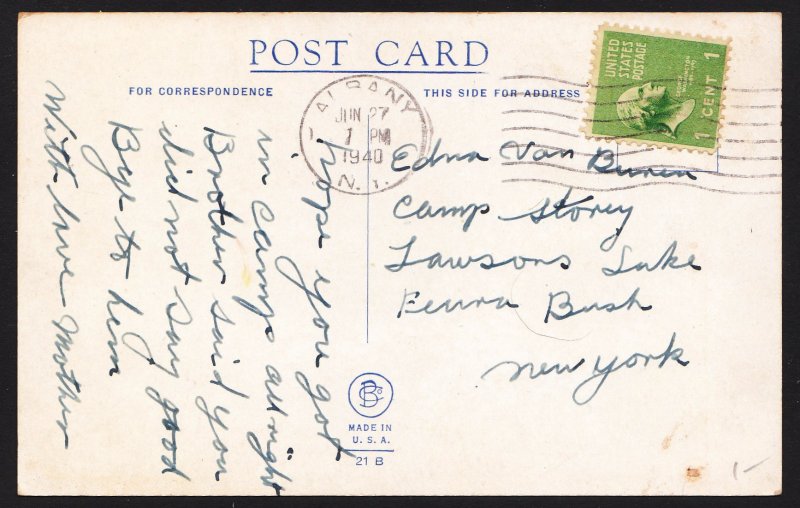 POST CARD
FOR CORRESPONDENCE
THIS SIDE FOR ADDRESS
UNITED
STATES
POSTAGE
1 CENT 1
ALBANY
JUN 27
1 PM
1940
N.Y.
hope you got
in camp all right
Brother said you
did not say good
Bye to hem
With love Mother
Edna Van Buren
Camp Storey
Lawsons Lake
Feura Bush
New York
MADE IN
U. S. A.
21 B
1-